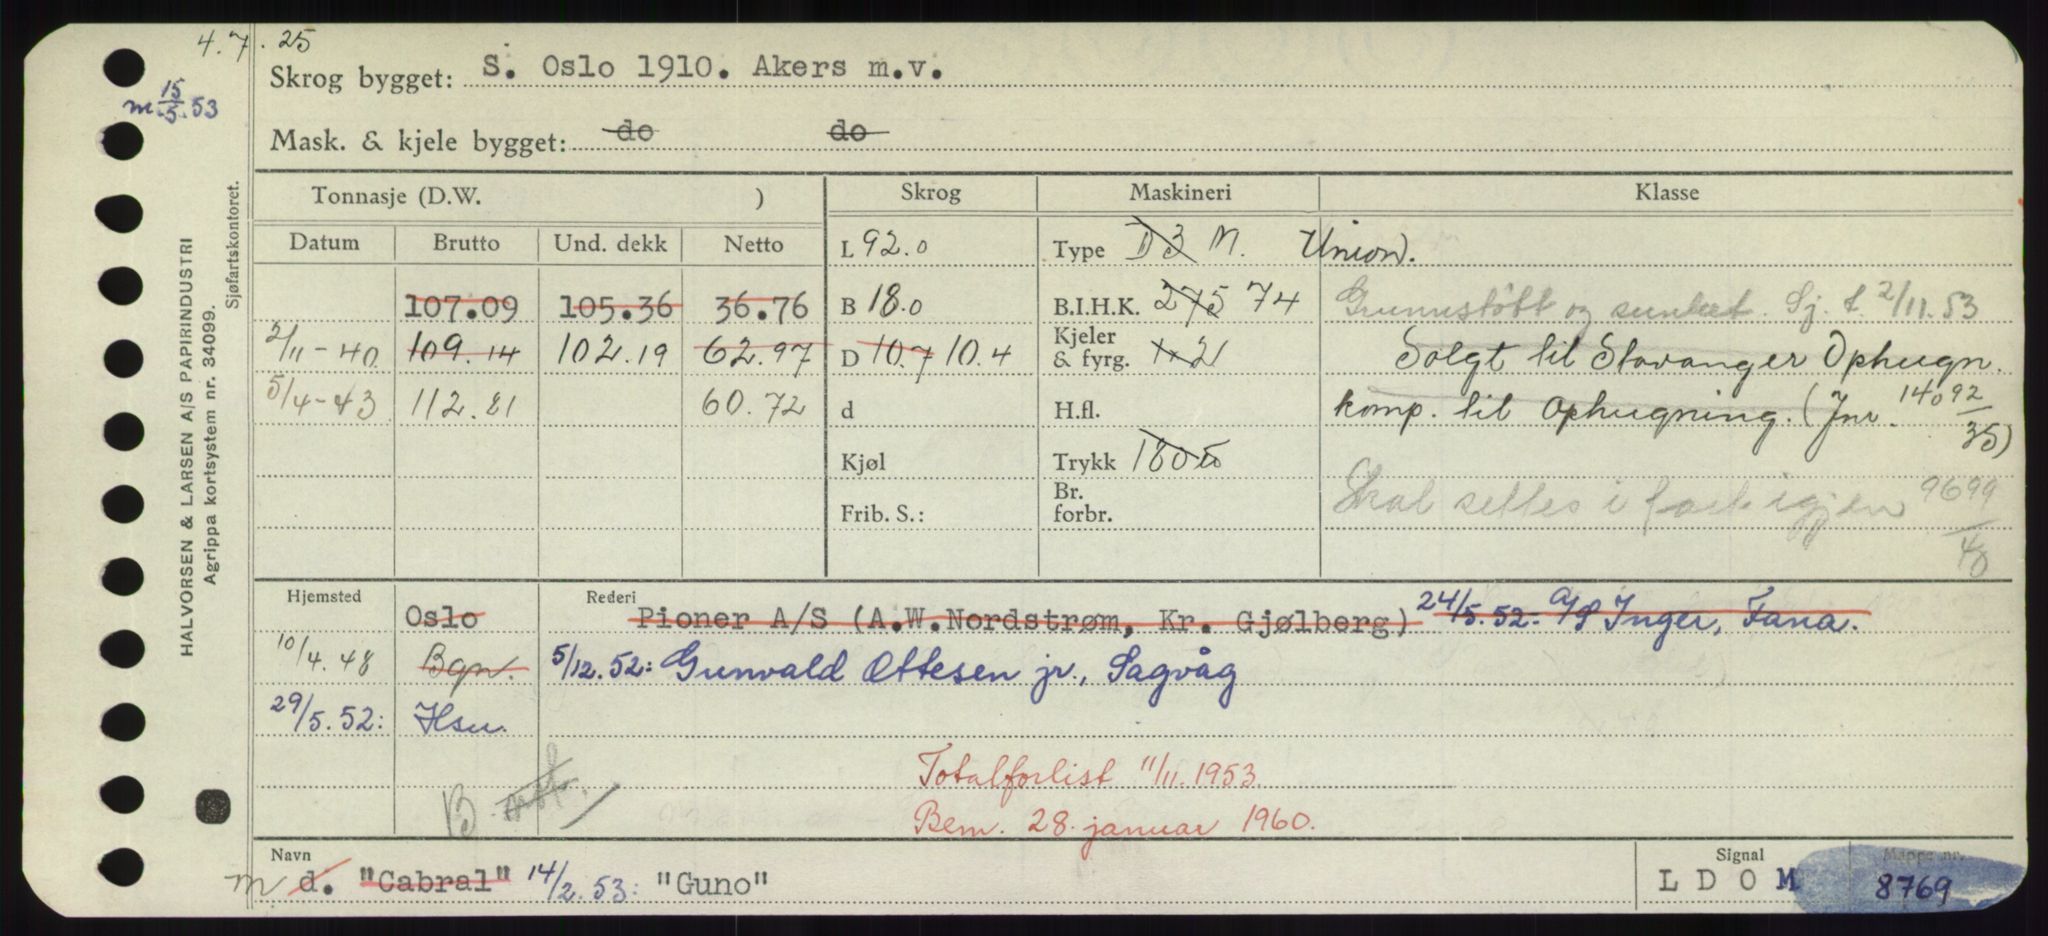 4.7.25
m 15/5.53
HALVORSEN & LARSEN A/S PAPIRINDUSTRI
Agrippa kortsystem nr. 34099.
Sjøfartskontoret.
Skrog bygget: S. Oslo 1910. Akers m.v.
Mask. & kjele bygget: do do
Tonnasje (D.W. ) Skrog Maskineri Klasse
Datum Brutto Und. dekk Netto L 92.0 Type D3 M. Union.
107.09 105.36 36.76 B 18.0 B.I.H.K. 275 74 Grunnstøtt og sunket. Sj. t. 2/11.53
2/11-40 109.14 102.19 62.97 D 10.7 10.4 Kjeler & fyrg. Solgt til Stavanger Ophugn.
5/4-43 112.81 60.72 d H.fl. komp. til Ophugning. (Jnr. 14092/35)
Kjøl Trykk 180
Frib. S.: Br. forbr. Skal settes i fart igjen 9699/40
Hjemsted Oslo Rederi Pioner A/S (A.W.Nordstrøm, Kr. Gjølberg) 24/5.52: A/S Inger, Fana.
10/4.48 Bgn. 5/12.52: Gunvald Ottesen jr., Sagvåg
29/5.52: Hsu.
Totalforlist 11/11.1953.
B.
Bem. 28. januar 1960.
Navn Signal Mappe nr.
m d. "Cabral" 14/2.53: "Guno" LDOM 8769